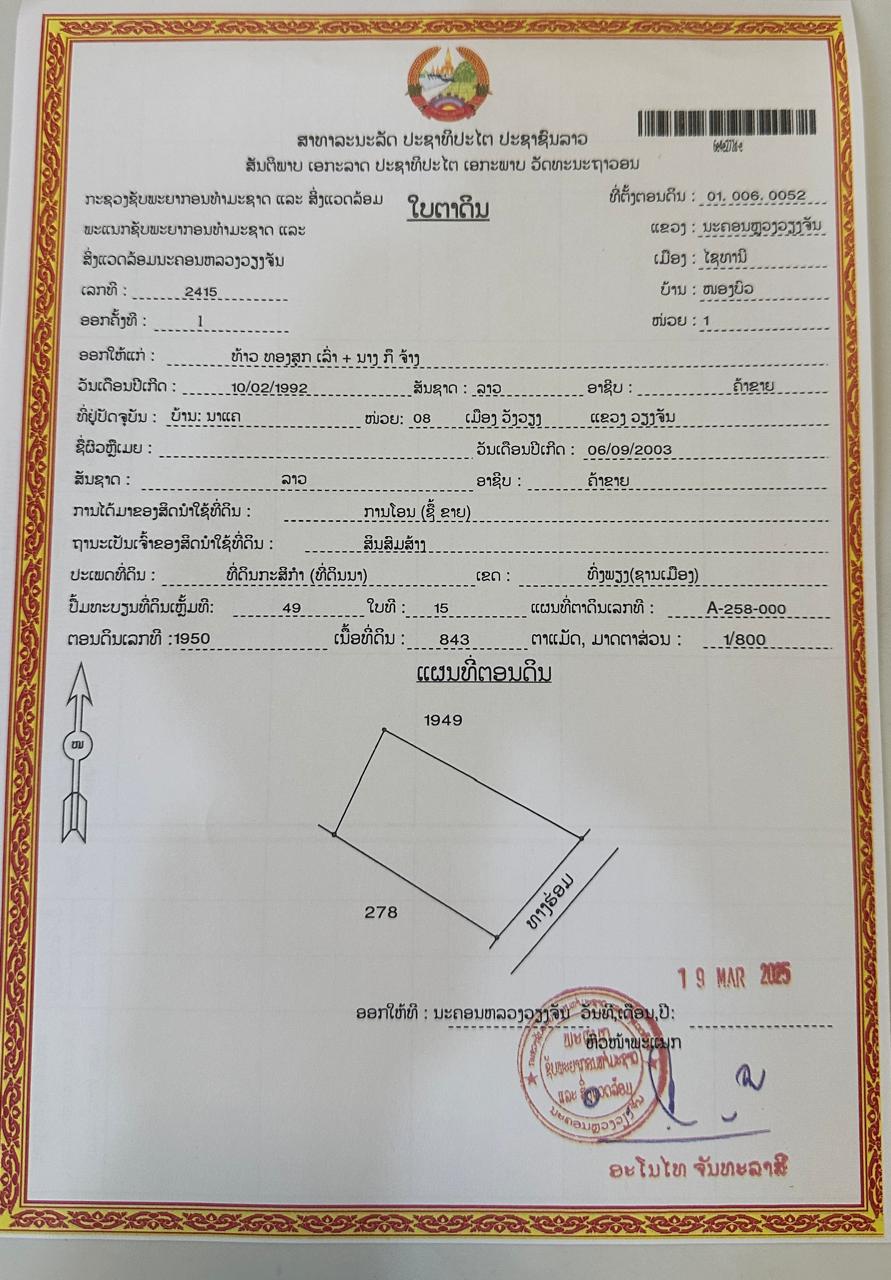 ສາທາລະນະລັດ ປະຊາທິປະໄຕ ປະຊາຊົນລາວ
ສັນຕິພາບ ເອກະລາດ ປະຊາທິປະໄຕ ເອກະພາບ ວັດທະນະຖາວອນ
ກະຊວງຊັບພະຍາກອນທຳມະຊາດ ແລະ ສິ່ງແວດລ້ອມ
ໃບຕາດິນ
ທີ່ຕັ້ງຕອນດິນ : 01. 006. 0052
ພະແນກຊັບພະຍາກອນທຳມະຊາດ ແລະ
ແຂວງ : ນະຄອນຫຼວງວຽງຈັນ
ສິ່ງແວດລ້ອມນະຄອນຫລວງວຽງຈັນ
ເມືອງ : ໄຊທານີ
ເລກທີ : 2415
ບ້ານ : ໜອງບົວ
ອອກຄັ້ງທີ : 1
ໜ່ວຍ : 1
ອອກໃຫ້ແກ່ : ທ້າວ ທອງສຸກ ເລົ່າ + ນາງ ກຶ ຈ້າງ
ວັນເດືອນປີເກີດ : 10/02/1992 ສັນຊາດ : ລາວ ອາຊີບ : ຄ້າຂາຍ
ທີ່ຢູ່ປັດຈຸບັນ : ບ້ານ: ນາແຄ ໜ່ວຍ: 08 ເມືອງ ວັງວຽງ ແຂວງ ວຽງຈັນ
ຊື່ຜົວຫຼືເມຍ : ວັນເດືອນປີເກີດ : 06/09/2003
ສັນຊາດ : ລາວ ອາຊີບ : ຄ້າຂາຍ
ການໄດ້ມາຂອງສິດນຳໃຊ້ທີ່ດິນ : ການໂອນ (ຊື້ ຂາຍ)
ຖານະເປັນເຈົ້າຂອງສິດນຳໃຊ້ທີ່ດິນ : ສິນສົມສ້າງ
ປະເພດທີ່ດິນ : ທີ່ດິນກະສິກຳ (ທີ່ດິນນາ) ເຂດ : ທົ່ງພຽງ(ຊານເມືອງ)
ປຶ້ມທະບຽນທີ່ດິນເຫຼັ້ມທີ: 49 ໃບທີ : 15 ແຜນທີ່ຕາດິນເລກທີ : A-258-000
ຕອນດິນເລກທີ :1950 ເນື້ອທີ່ດິນ : 843 ຕາແມັດ, ມາດຕາສ່ວນ : 1/800
ແຜນທີ່ຕອນດິນ
1949
ໜ
278
ທາງຮ່ອມ
19 MAR 2025
ອອກໃຫ້ທີ່ : ນະຄອນຫລວງວຽງຈັນ ວັນທີ,ເດືອນ,ປີ:
ຫົວໜ້າພະແນກ
ພະແນກ
ຊັບພະຍາກອນທຳມະຊາດ
ແລະ ສິ່ງແວດລ້ອມ
ນະຄອນຫຼວງວຽງຈັນ
ອະໂນໄທ ຈັນທະລາສີ